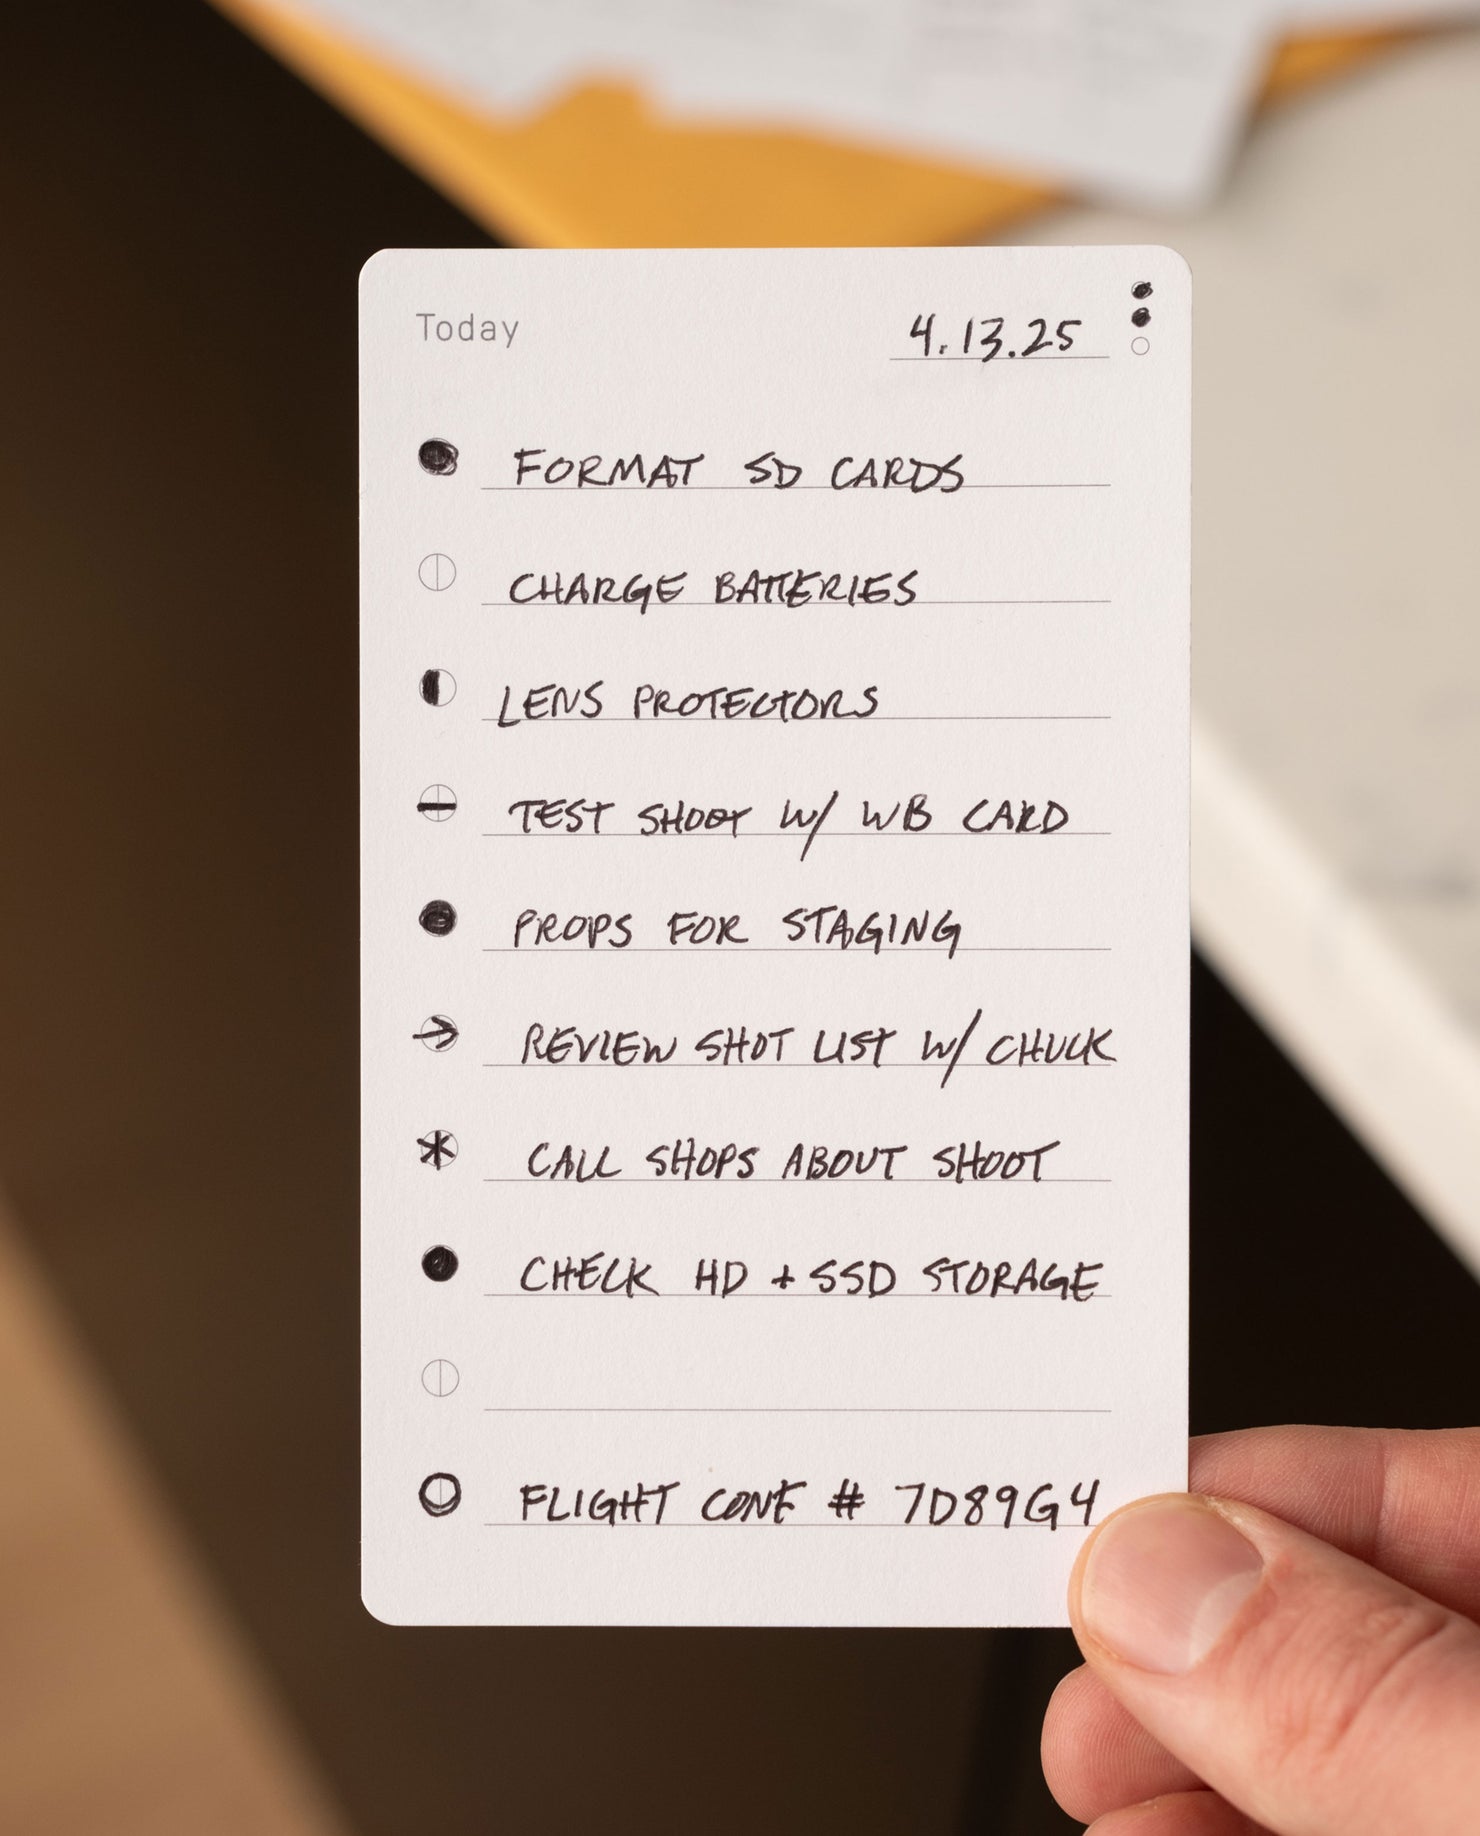 Today
4.13.25
FORMAT SD CARDS
CHARGE BATTERIES
LENS PROTECTORS
TEST SHOOT W/ WB CARD
PROPS FOR STAGING
REVIEW SHOT LIST W/ CHUCK
CALL SHOPS ABOUT SHOOT
CHECK HD + SSD STORAGE
FLIGHT CONF # 7D89G4